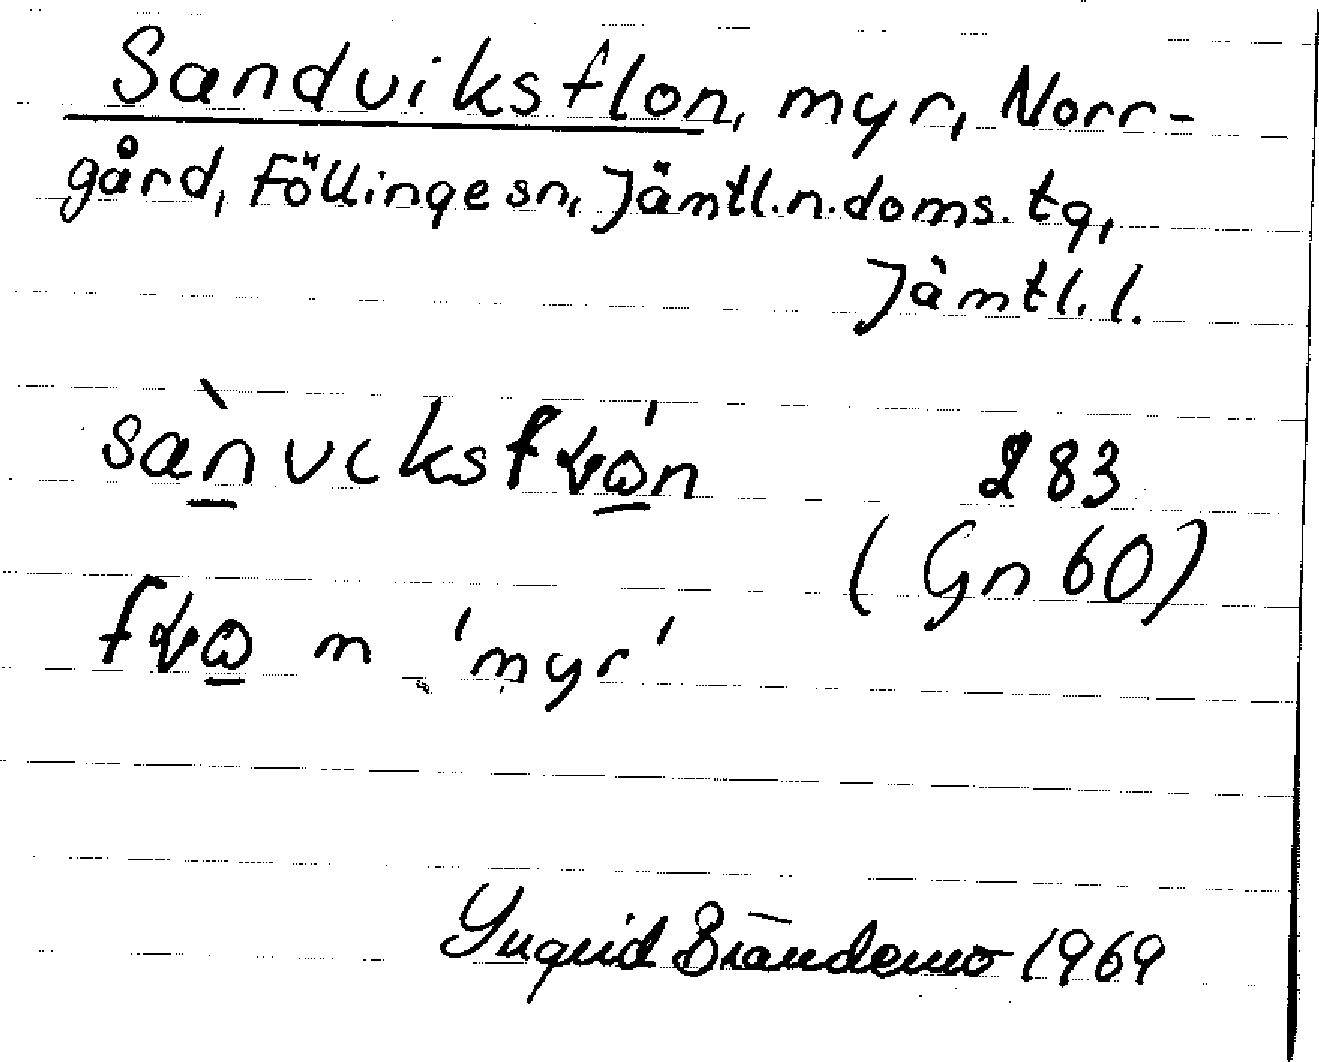 Sandviksflon, myr, Norr-
gård, Föllinge sn, Jämtl.n.doms.tg,
Jämtl.l.
283
(Gn 60)
n 'myr'
Ingrid Brändemo 1969